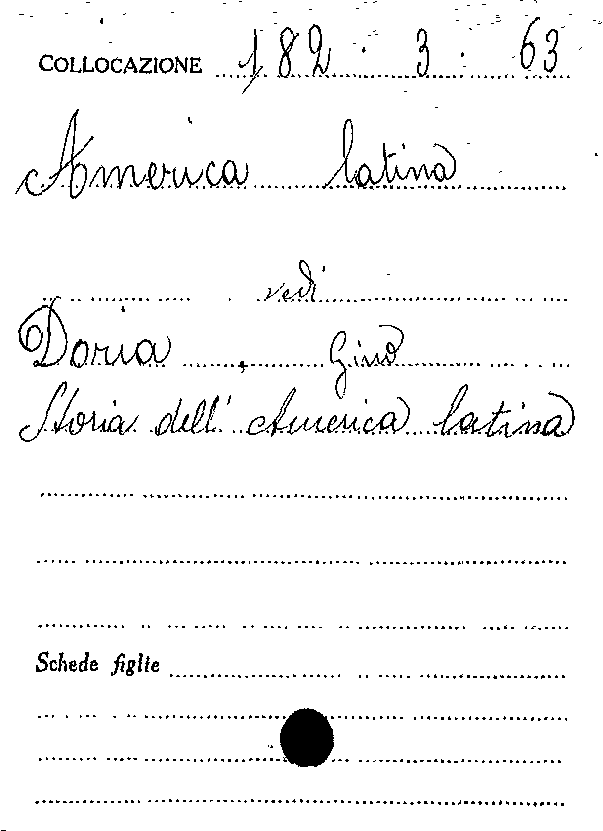 COLLOCAZIONE 182 . 3 . 63
America latina
vedi
Doria , Gino
Storia dell' America latina
Schede figlie